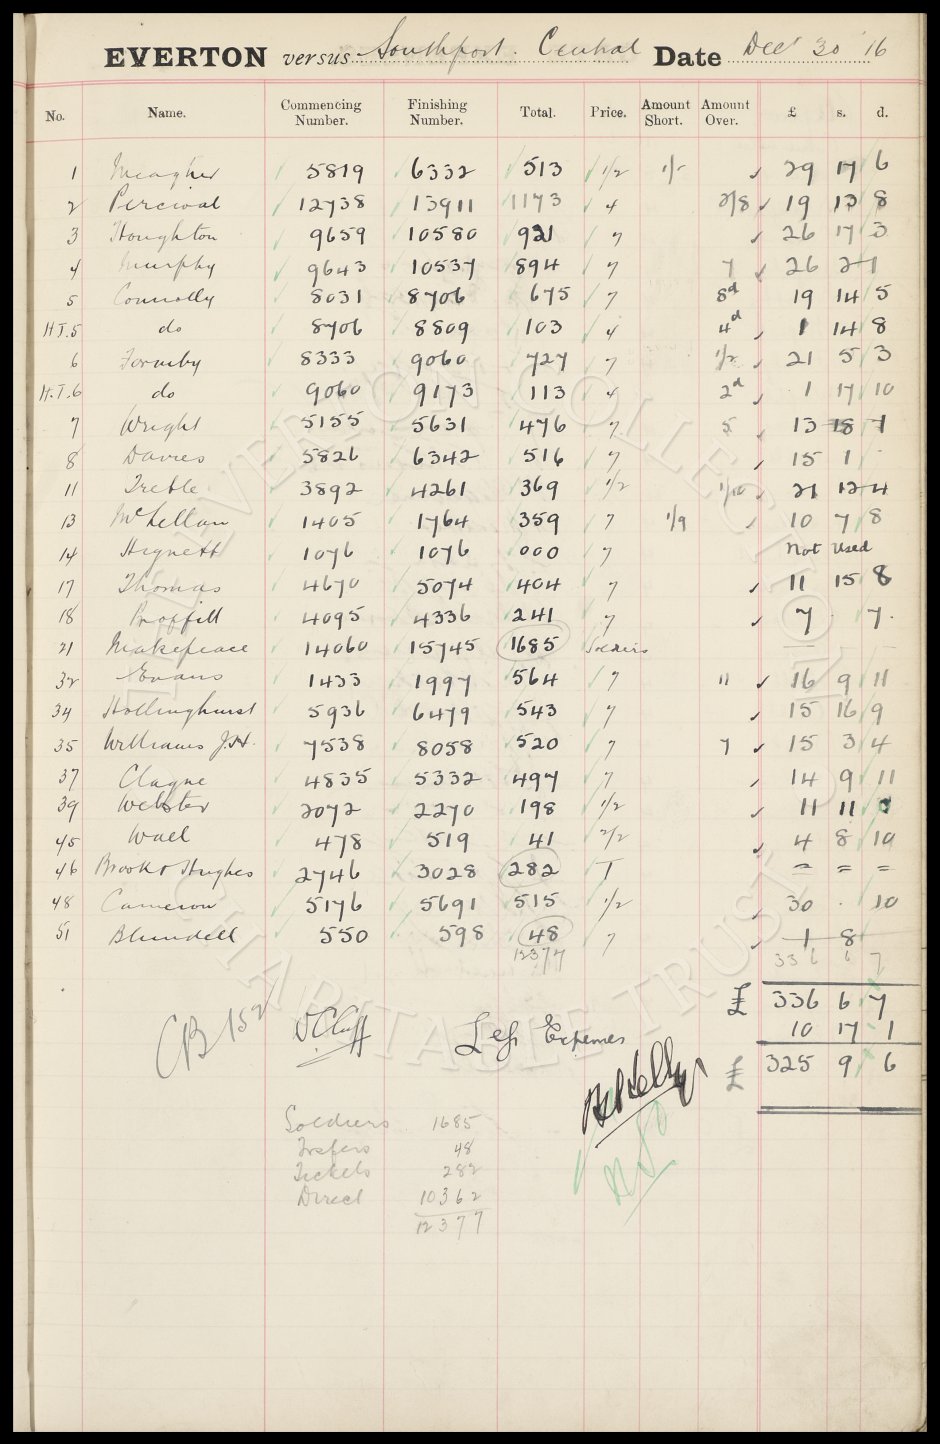 EVERTON versus Southport. Central Date Dec' 30 '16
No. Name. Commencing Number. Finishing Number. Total. Price. Amount Short. Amount Over. £ s. d.
1 Meagher 5819 6332 513 1/2 1/- 29 17 6
2 Percival 12738 13911 1173 4 2/8 19 13 8
3 Houghton 9659 10580 921 7 26 17 3
4 Murphy 9643 10537 894 7 7 26 2 1
5 Connolly 8031 8706 675 7 8d 19 14 5
H.T.5 do 8706 8809 103 4 4d 1 14 8
6 Formby 8333 9060 727 7 1/2 21 5 3
H.T.6 do 9060 9173 113 4 2d 1 17 10
7 Wright 5155 5631 476 7 5 13 18 1
8 Davies 5826 6342 516 7 15 1 -
11 Treble 3892 4261 369 1/2 1/10 21 12 4
13 McLellan 1405 1764 359 7 1/9 10 7 8
14 Hignett 1076 1076 000 7 Not Used
17 Thomas 4670 5074 404 7 11 15 8
18 Proffitt 4095 4336 241 7 7 . 7.
21 Makepeace 14060 15745 1685 Soldiers
32 Evans 1433 1997 564 7 11 16 9 11
34 Hollinghurst 5936 6479 543 7 15 16 9
35 Williams J.H. 7538 8058 520 7 7 15 3 4
37 Clague 4835 5332 497 7 14 9 11
39 Webster 2072 2270 198 1/2 11 11 0
45 Wall 478 519 41 2/2 4 8 10
46 Brook & Hughes 2746 3028 282 T = = =
48 Cameron 5176 5691 515 1/2 30 . 10
51 Blundell 550 598 48 7 1 8
12377 336 6 7
£ 336 6 7
CB 152 D Cluff Less Expenses 10 17 1
£ 325 9 6
Soldiers 1685
Trsfers 48
Tickets 282
Direct 10362
12377
EVERTON COLLECTION
CHARITABLE TRUST